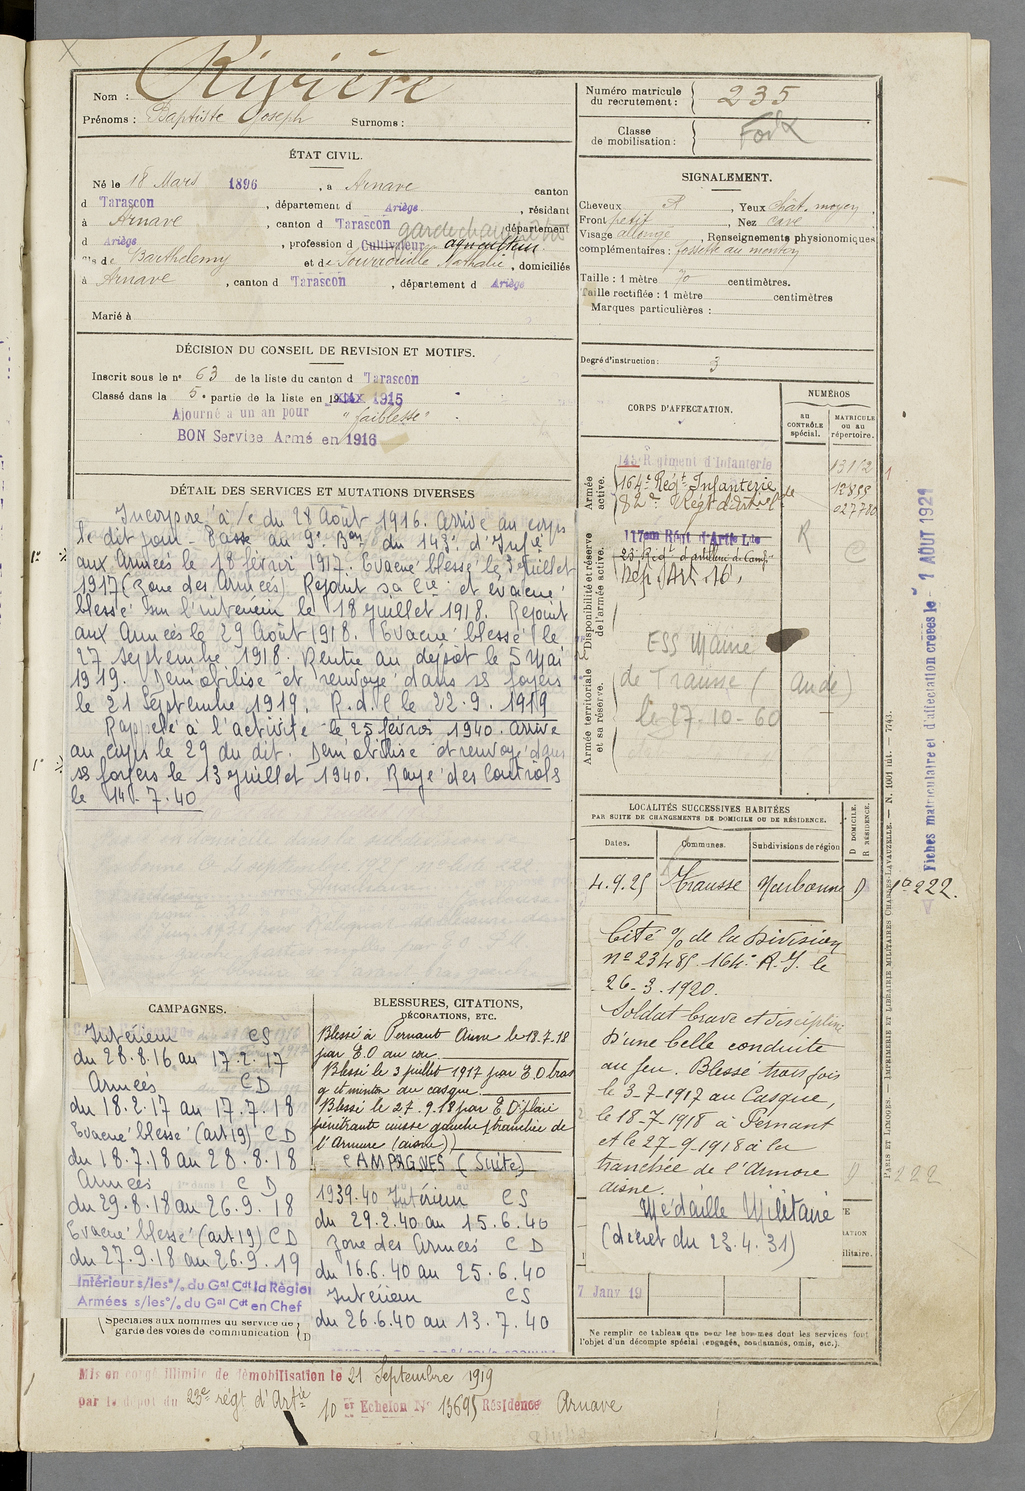 Nom : Rivière
Prénoms : Baptiste Joseph Surnoms :
ÉTAT CIVIL.
Né le 18 Mars 1896 , à Arnave canton
d Tarascon , département d Ariège , résidant
à Arnave , canton d Tarascon département
d Ariège , profession d Cultivateur agriculteur
fils de Barthelemy et de Nathalie , domiciliés
à Arnave , canton d Tarascon , département d Ariège
Marié à
DÉCISION DU CONSEIL DE REVISION ET MOTIFS.
Inscrit sous le n° 63 de la liste du canton d Tarascon
Classé dans la 5e partie de la liste en 1915
Ajourné a un an pour "faiblesse"
BON Service Armé en 1916
DÉTAIL DES SERVICES ET MUTATIONS DIVERSES
Incorporé à /c du 28 Août 1916. Arrivé au corps
le dit jour - Passé au 9e Bon du 143e d'Infie
aux Armées le 18 février 1917. Evacué blessé le 3 juillet
1917 (zone des Armées) Rejoint sa Cie et évacué
blessé sur l'intérieur le 18 juillet 1918. Rejoint
aux Armées le 29 Août 1918. Evacué blessé le
27 septembre 1918. Rentré au dépôt le 5 Mai
1919. Démobilisé et renvoyé dans ss foyers
le 21 Septembre 1919. R.d.C le 22.9.1919
Rappelé à l'activité le 25 février 1940. Arrivé
au corps le 29 du dit. Démobilisé et renvoyé dans
ss foyers le 13 juillet 1940. Rayé des Contrôles
le 14.7.40
CAMPAGNES.
Intérieur CS
du 28.8.16 au 17.2.17
Armées CD
du 18.2.17 au 17.7.18
Evacué blessé (art 19) CD
du 18.7.18 au 28.8.18
Armées CD
du 29.8.18 au 26.9.18
Evacué blessé (art 19) CD
du 27.9.18 au 26.9.19
Intérieur s/les °/. du Gal Cdt la Région
Armées s/les °/. du Gal Cdt en Chef
Spéciales aux hommes du service de
garde des voies de communication
BLESSURES, CITATIONS,
DÉCORATIONS, ETC.
Blessé à Pernant Aisne le 18.7.18
par E.O au cou
Blessé le 3 juillet 1917 par E.O bras
g et menton au casque.
Blessé le 27.9.18 par E.O plaie
pénétrante cuisse gauche (tranchée de
l'Armure (aisne))
CAMPAGNES (Suite)
1939.40 Intérieur CS
du 29.2.40 au 15.6.40
Zone des Armées CD
du 16.6.40 au 25.6.40
Intérieur CS
du 26.6.40 au 13.7.40
Mis en congé illimité de démobilisation le 21 Septembre 1919
par le dépôt du 23e régt d'Artie 10 er Echelon N° 13695 Résidence Arnave
Numéro matricule
du recrutement : 235
Classe
de mobilisation :
SIGNALEMENT.
Cheveux , Yeux chât. moyen ,
Front petit , Nez cave
Visage allongé , Renseignements physionomiques
complémentaires : fossette au menton
Taille : 1 mètre 70 centimètres.
Taille rectifiée : 1 mètre centimètres
Marques particulières :
Degré d'instruction : 3
CORPS D'AFFECTATION.
NUMÉROS
au
CONTRÔLE
spécial.
MATRICULE
ou au
répertoire.
Armée
active.
143 Régiment d'Infanterie
164e Régt Infanterie
82e
Disponibilité et réserve
de l'armée active.
117em Régt d'Artie Lde
23 Régt d'artillerie de Camp
Dép. Art. 16
R
C
Armée territoriale
et sa réserve.
ESS Mairie
de Trausse (Aude)
le 27-10-60
LOCALITÉS SUCCESSIVES HABITÉES
PAR SUITE DE CHANGEMENTS DE DOMICILE OU DE RÉSIDENCE.
Dates. Communes. Subdivisions de région
D DOMICILE.
R RÉSIDENCE.
4.9.25 Trausse Narbonne D 1a 222.
Cité °/. de la Division
n° 23485. 164e R.I. le
26-3.1920.
Soldat brave et discipliné
D'une belle conduite
au feu. Blessé trois fois
le 3-7-1917 au Casque,
le 18-7-1918 à Pernant
et le 27-9-1918 à la
tranchée de l'Armure
aisne.
Médaille Militaire
(décret du 23.4.31)
222
7 Janv 19
Ne remplir ce tableau que pour les hommes dont les services font
l'objet d'un décompte spécial (engagés, condamnés, omis, etc.).
PARIS ET LIMOGES. — IMPRIMERIE ET LIBRAIRIE MILITAIRES CHARLES-LAVAUZELLE. — N. 1001 int. — 7743.
Fiches matriculaire et d'affectation créées le 1 AOUT 1921